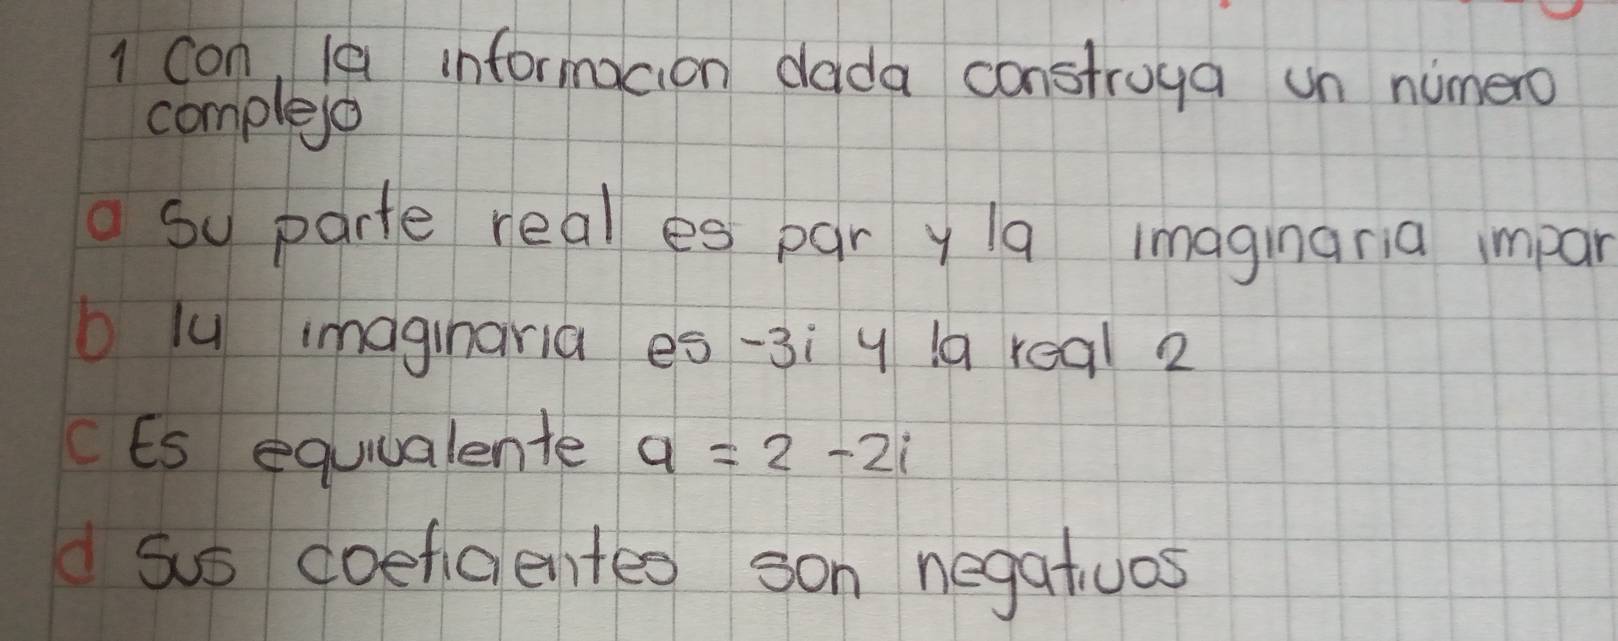 1 Con, la informacion dada construya un número
complejo
a su parte real es par y la imaginaria impar
b la imaginaria es -3i y la real 2
c Es equivalente a = 2 -2i
d sus coeficientes son negativos